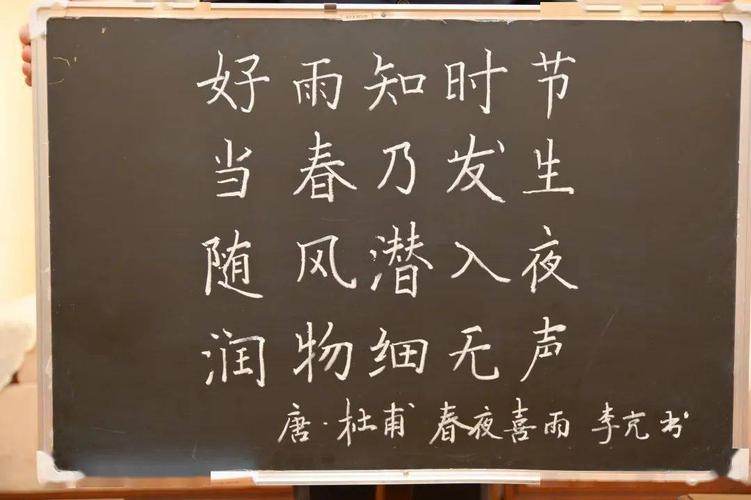 好雨知时节
当春乃发生
随风潜入夜
润物细无声
唐·杜甫 春夜喜雨 李亢书